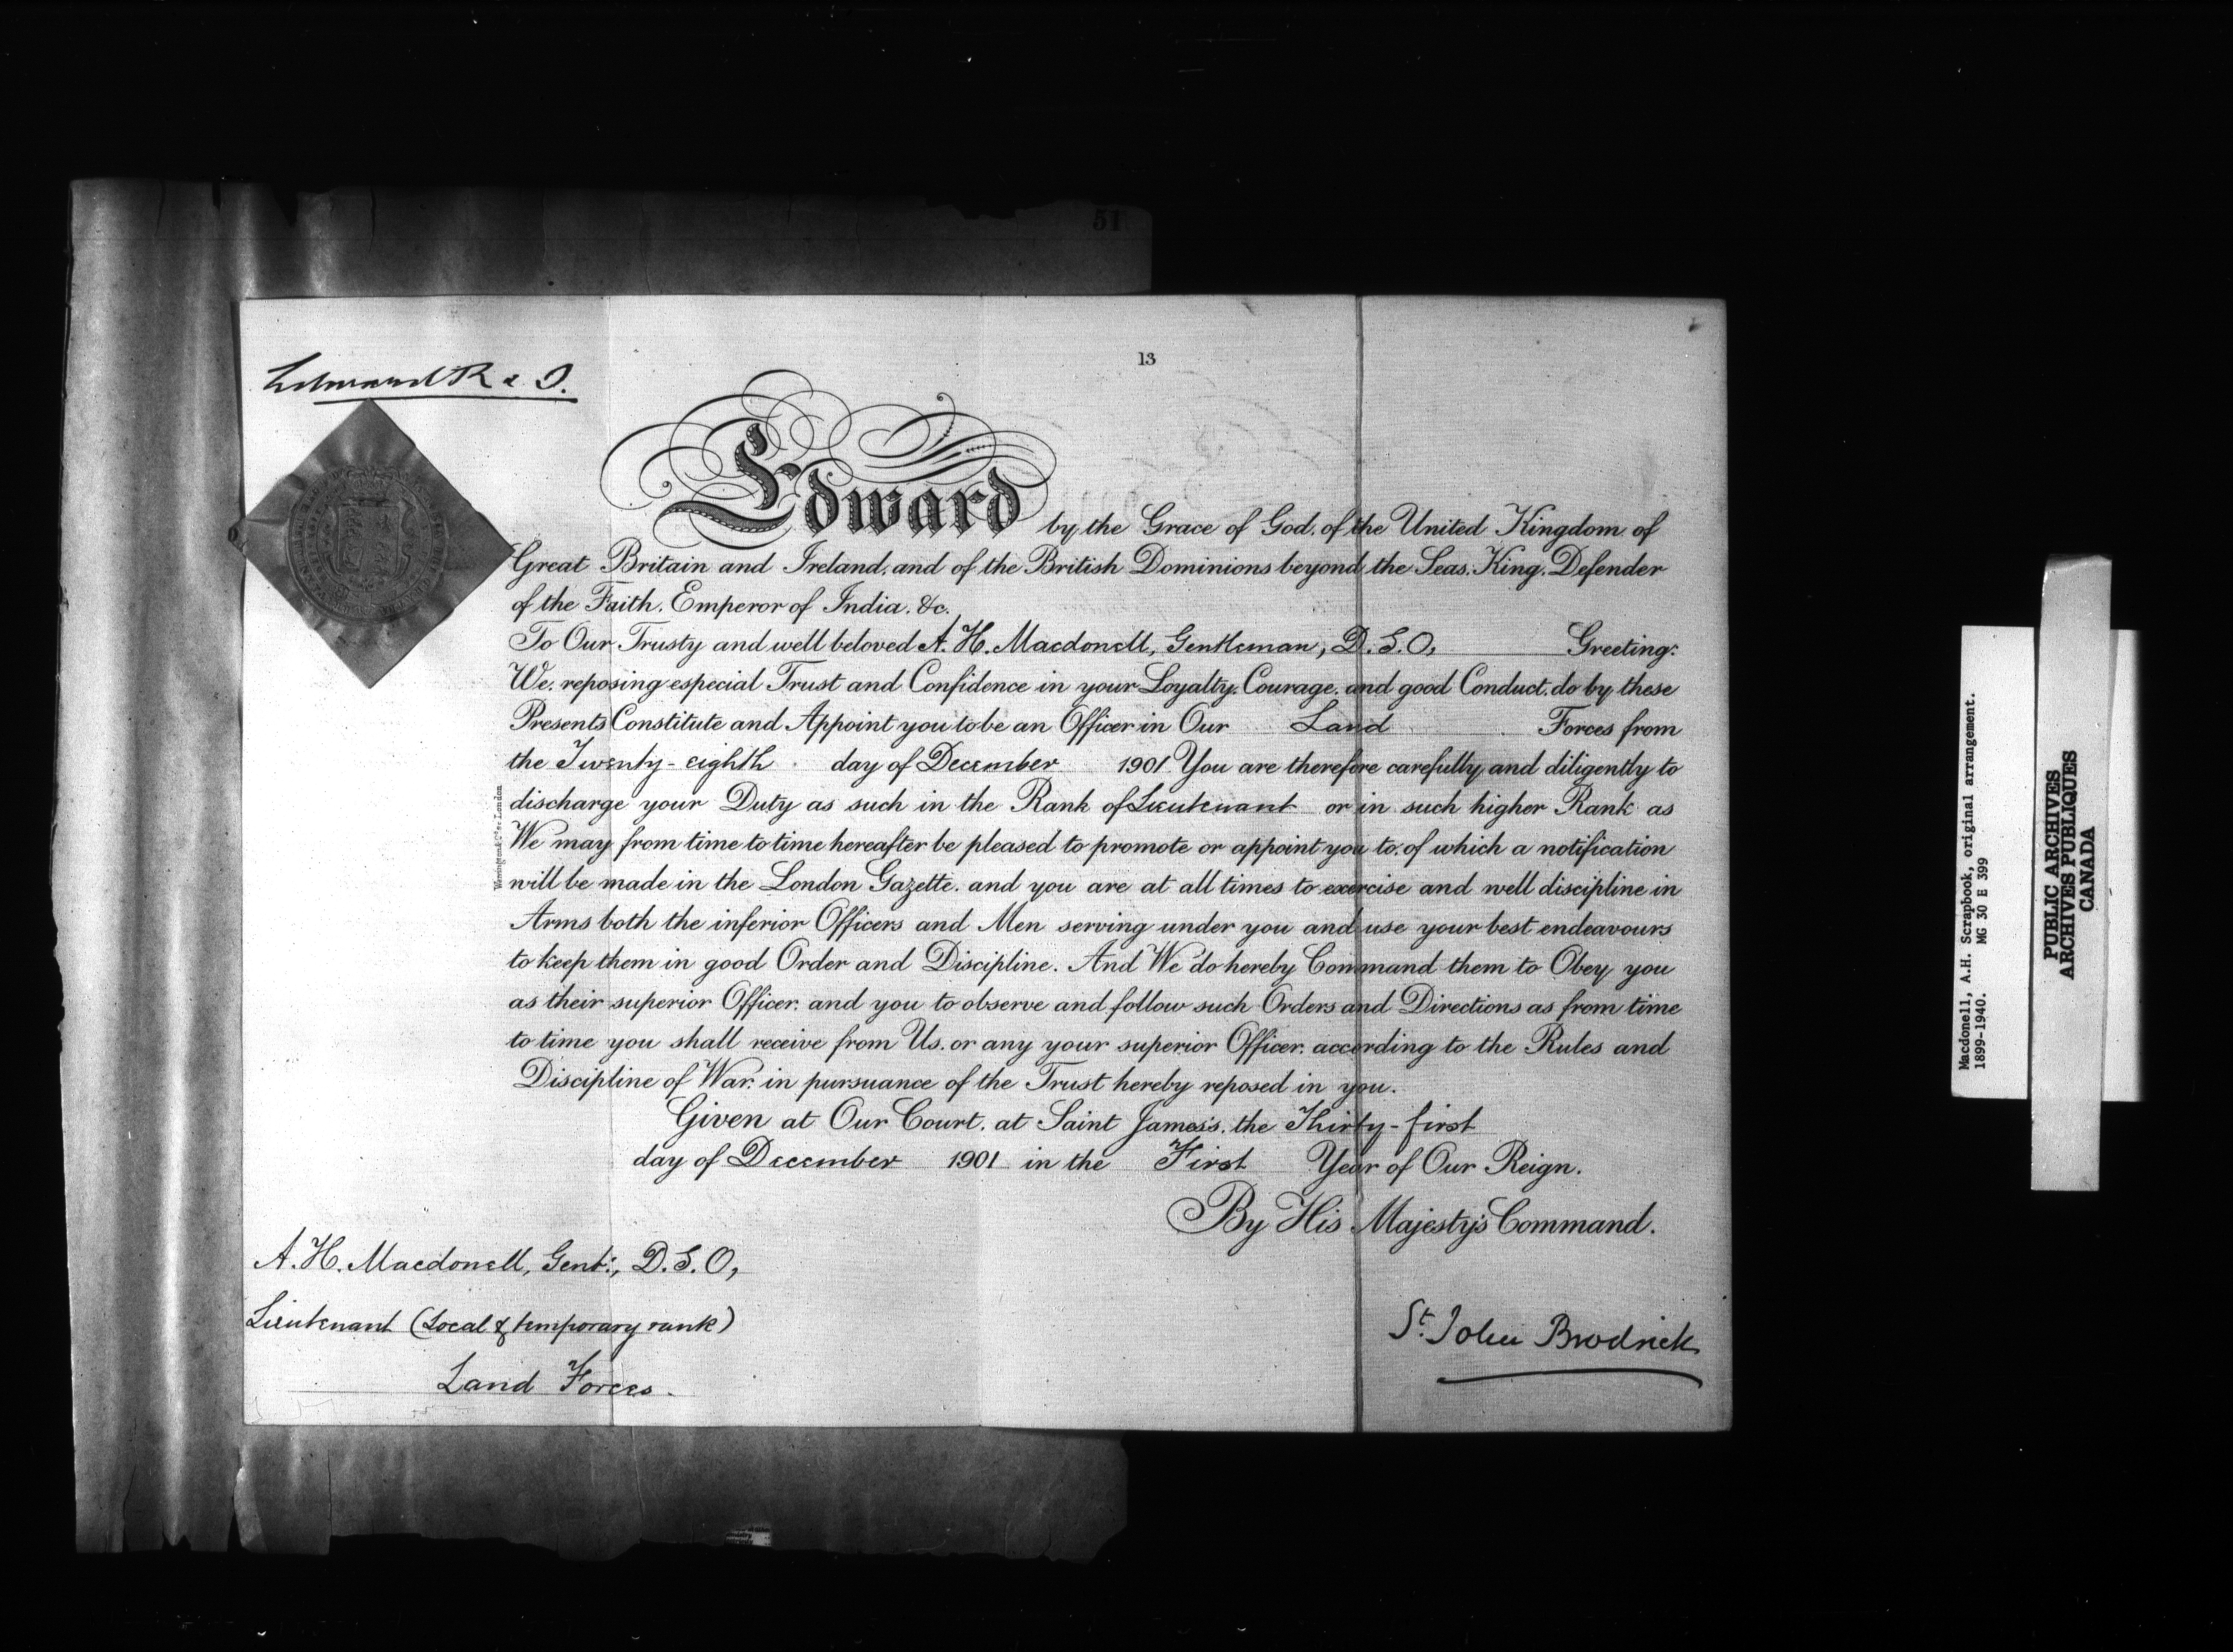 51
13
Edward R & I.
Edward by the Grace of God, of the United Kingdom of
Great Britain and Ireland, and of the British Dominions beyond the Seas, King, Defender
of the Faith, Emperor of India, &c.
To Our Trusty and well beloved A. H. Macdonell, Gentleman, D.S.O, Greeting:
We, reposing especial Trust and Confidence in your Loyalty, Courage, and good Conduct, do by these
Presents Constitute and Appoint you to be an Officer in Our Land Forces from
the Twenty-eighth day of December 1901 You are therefore carefully and diligently to
discharge your Duty as such in the Rank of Lieutenant or in such higher Rank as
We may from time to time hereafter be pleased to promote or appoint you to, of which a notification
will be made in the London Gazette, and you are at all times to exercise and well discipline in
Arms both the inferior Officers and Men serving under you and use your best endeavours
to keep them in good Order and Discipline. And We do hereby Command them to Obey you
as their superior Officer, and you to observe and follow such Orders and Directions as from time
to time you shall receive from Us, or any your superior Officer, according to the Rules and
Discipline of War, in pursuance of the Trust hereby reposed in you.
Given at Our Court, at Saint James's, the Thirty-first
day of December 1901 in the First Year of Our Reign.
By His Majesty's Command.
A. H. Macdonell, Gent:, D.S.O,
Lieutenant (Local & temporary rank)
Land Forces.
St. John Brodrick
Macdonell, A.H. Scrapbook, original arrangement.
1899-1940. MG 30 E 399
PUBLIC ARCHIVES
ARCHIVES PUBLIQUES
CANADA